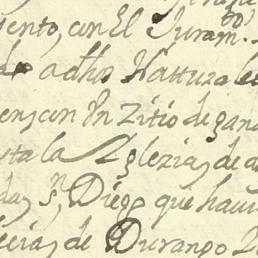 iento, con El Juram.to
a dhos Natturales
en, con Un Zitio de gana
ta la Yglezia, de d
das Sn, Diego que havi
lecia, de Durango